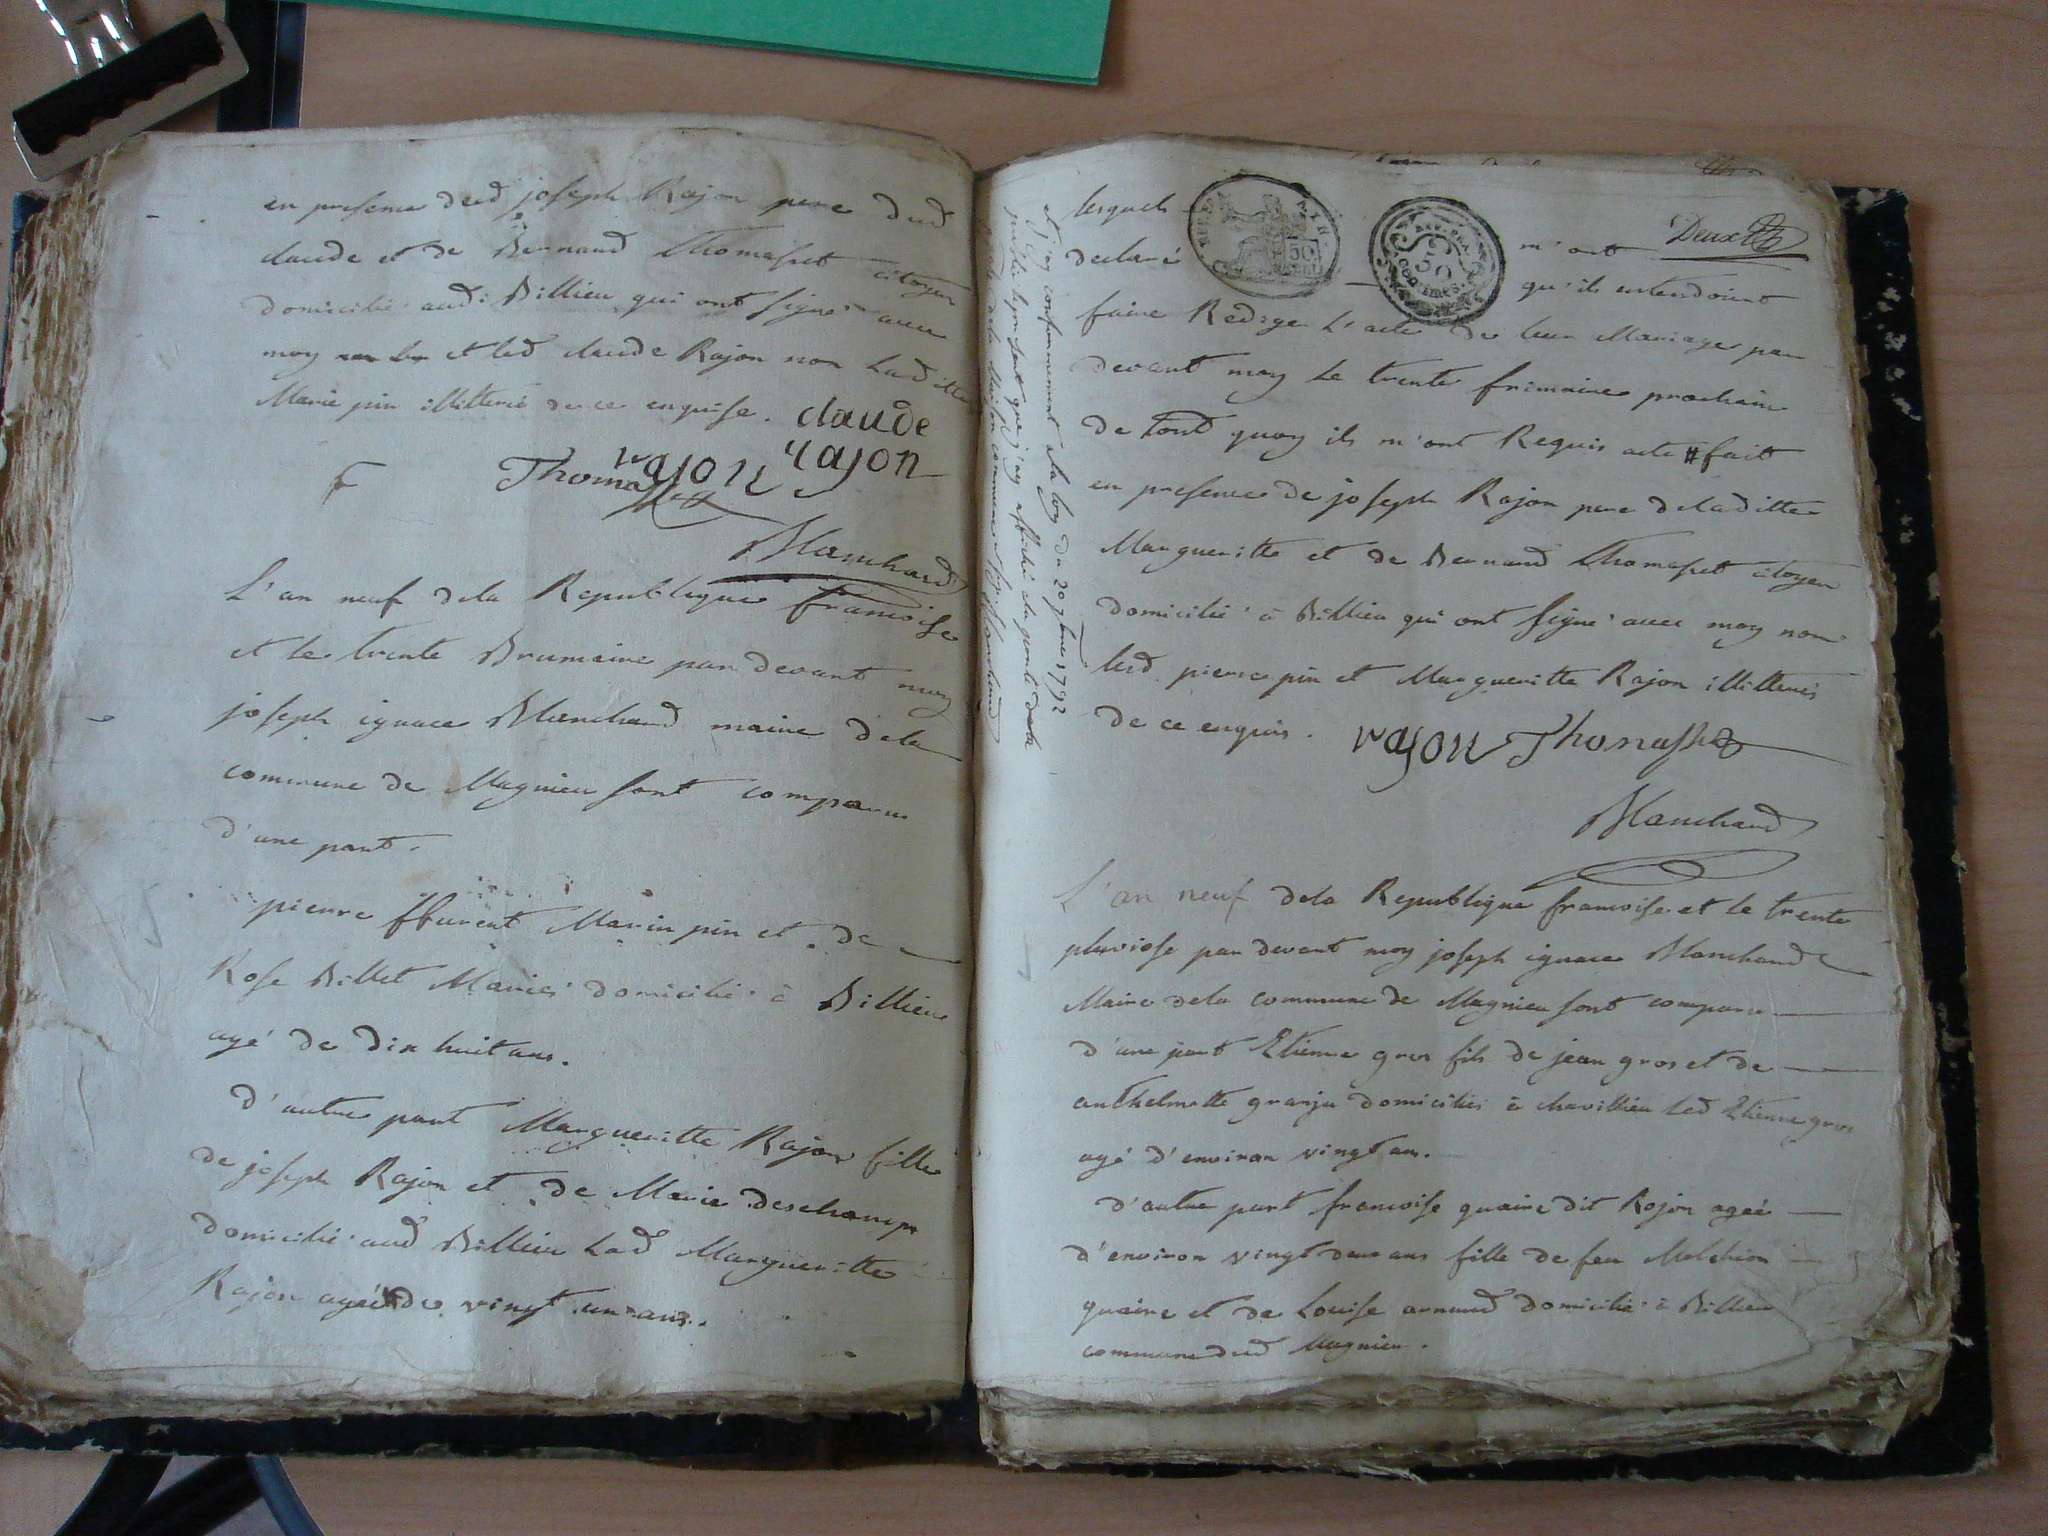 en presence dud joseph Rajon pere dud
claude et de Bernard Thomasset citoyen
domicilié aud: Billieu qui ont signé avec
moy et led claude Rajon non laditte
Marie pin illitteré de ce enquise. claude
rajon
rajon
Thomasset
Blanchard
L'an neuf dela Republique francoise
et le trente Brumaire par devant moy
joseph ignace Blanchard maire dela
commune de Magnieu sont comparu
d'une part.
pierre Marin pin et de
Rose Billet Mariés domicilié à Billieu
agé de dix huit ans.
d'autre part Margueritte Rajon fille
de joseph Rajon et de Marie deschamps
domicilié aud Billieu lad Margueritte
Rajon agée de vingt un ans.
Deux
lesquels m'ont
declaré qu'ils entendoient
faire Rediger l'acte de leur Mariage par
devant moy le trente frimaire prochain
de tout quoy ils m'ont Requis acte # fait
en presence de joseph Rajon pere de laditte
Margueritte et de Bernard Thomasset citoyen
domicilié à Billieu qui ont signé avec moy non
lesd. pierre pin et Margueritte Rajon illitterés
de ce enquis. rajon Thomasset
Blanchard
et j'ay conformement a la loy du 20 7bre 1792
publié le present que j'ay affiché a la porte de la
de la Maison commune Blanchard
L'an neuf dela Republique francoise et le trente
pluviose par devant moy joseph ignace Blanchard
Maire dela commune de Magnieu sont comparu
d'une part Etienne gros fils de jean gros et de
anthelmette granju domiciliés à chavillieu led Etienne gros
agé d'environ vingt ans.
d'autre part francoise quaire dit Rojon agée
d'environ vingt deux ans fille de feu Melchion
quaire et de Louise domicilié à Billieu
commune dud Magnieu.
50
50
CENTIMES